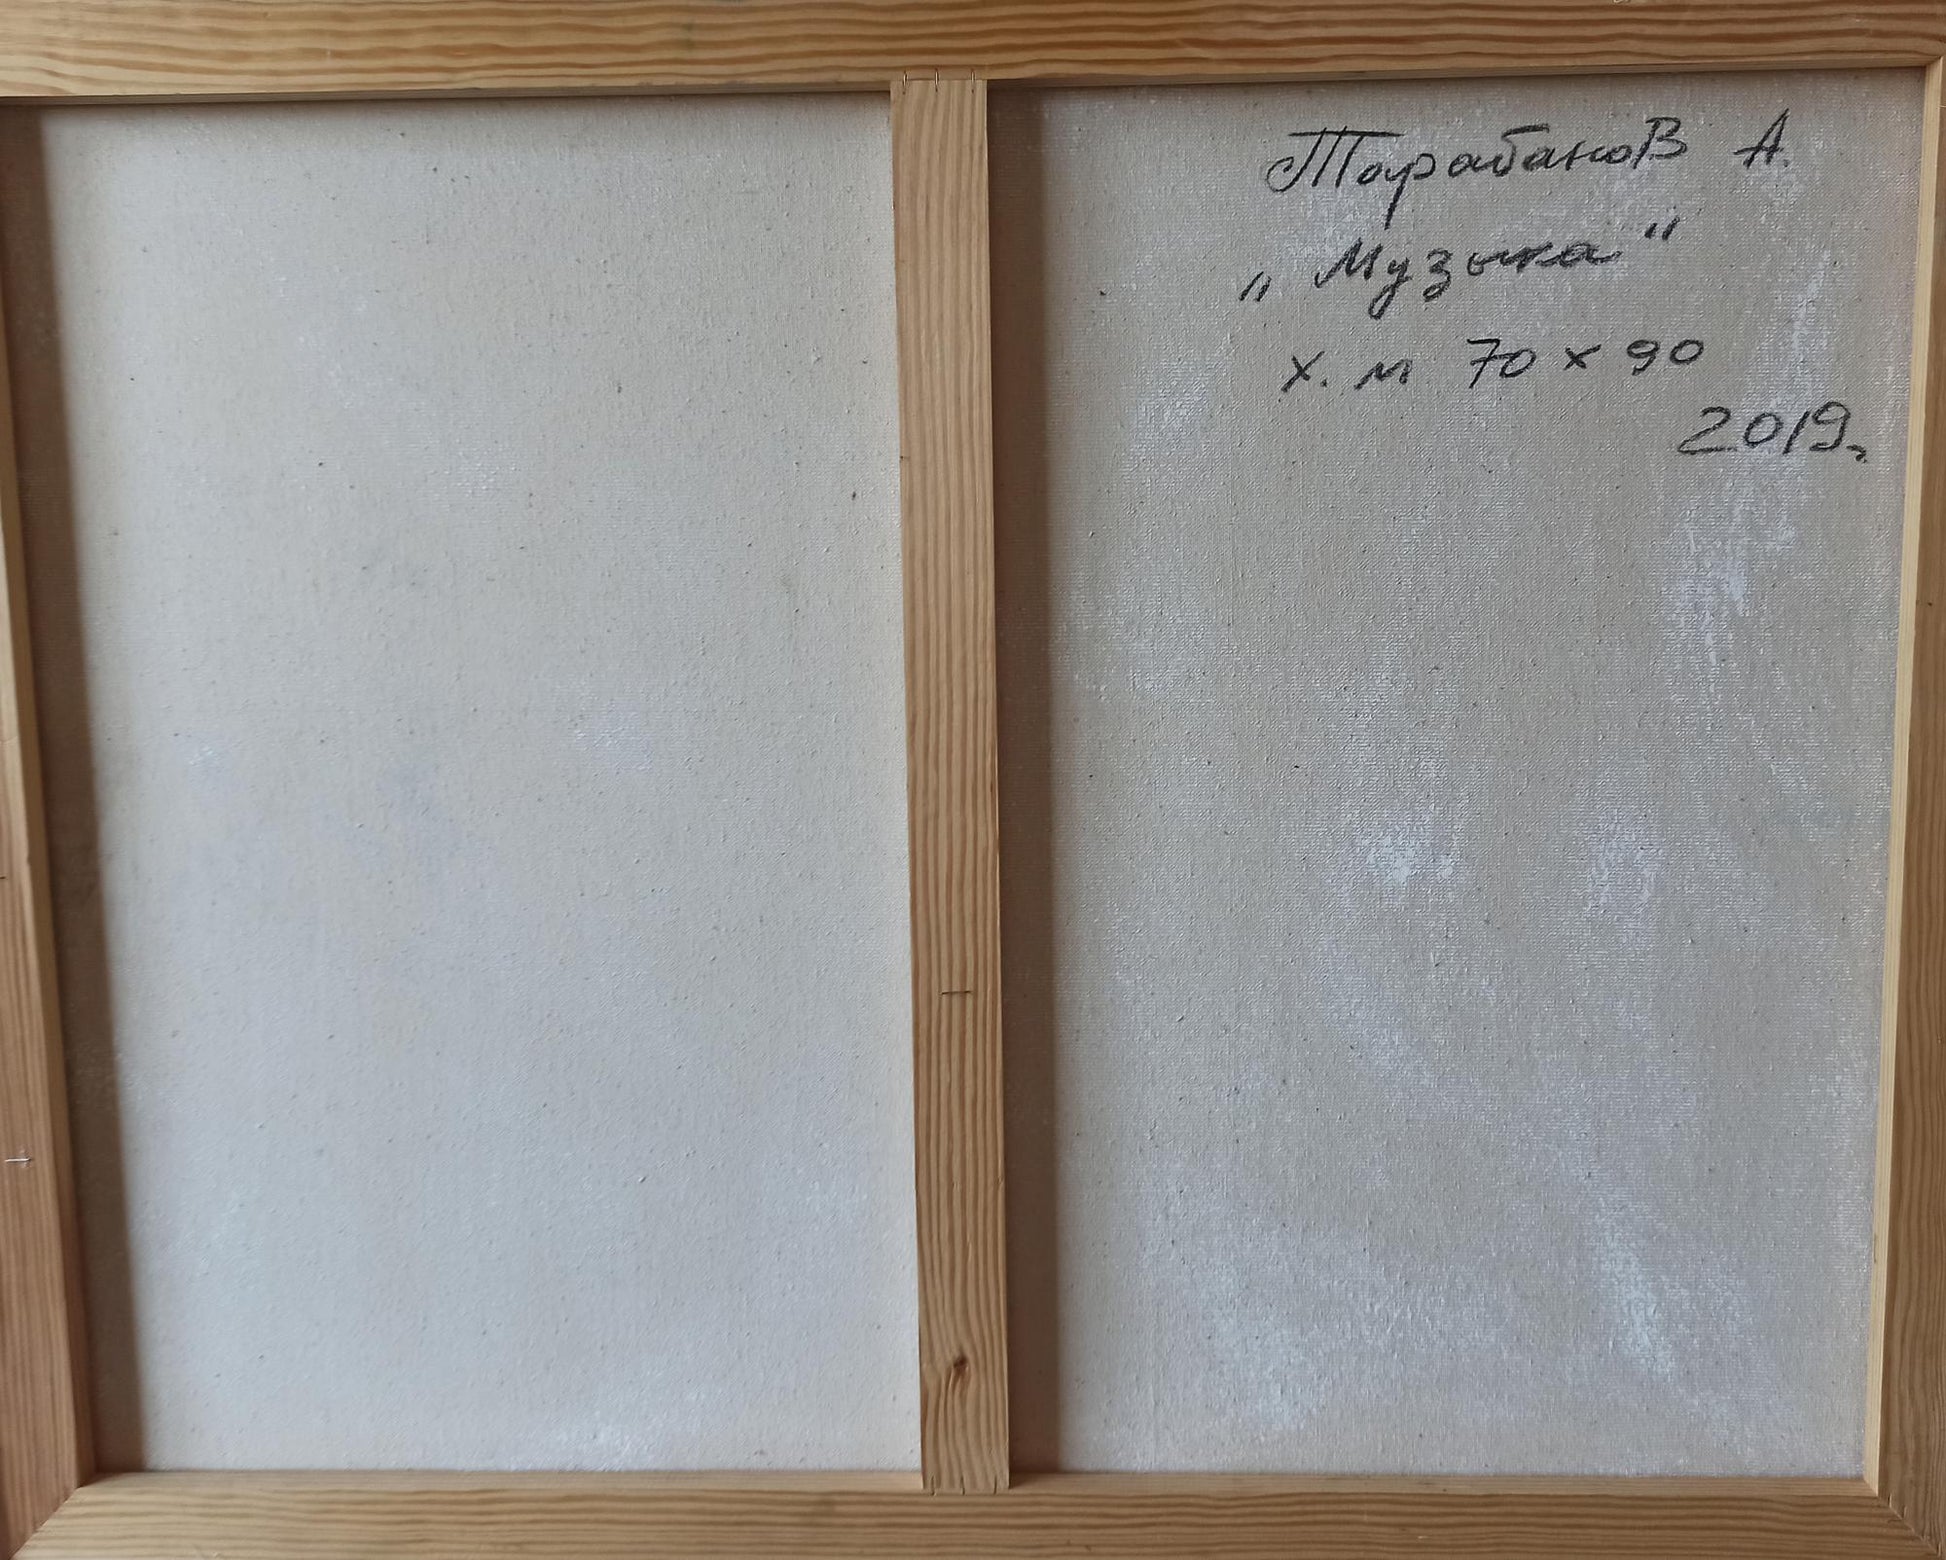 Тарабанов А.
„Музыка"
х. м 70 х 90
2019г.